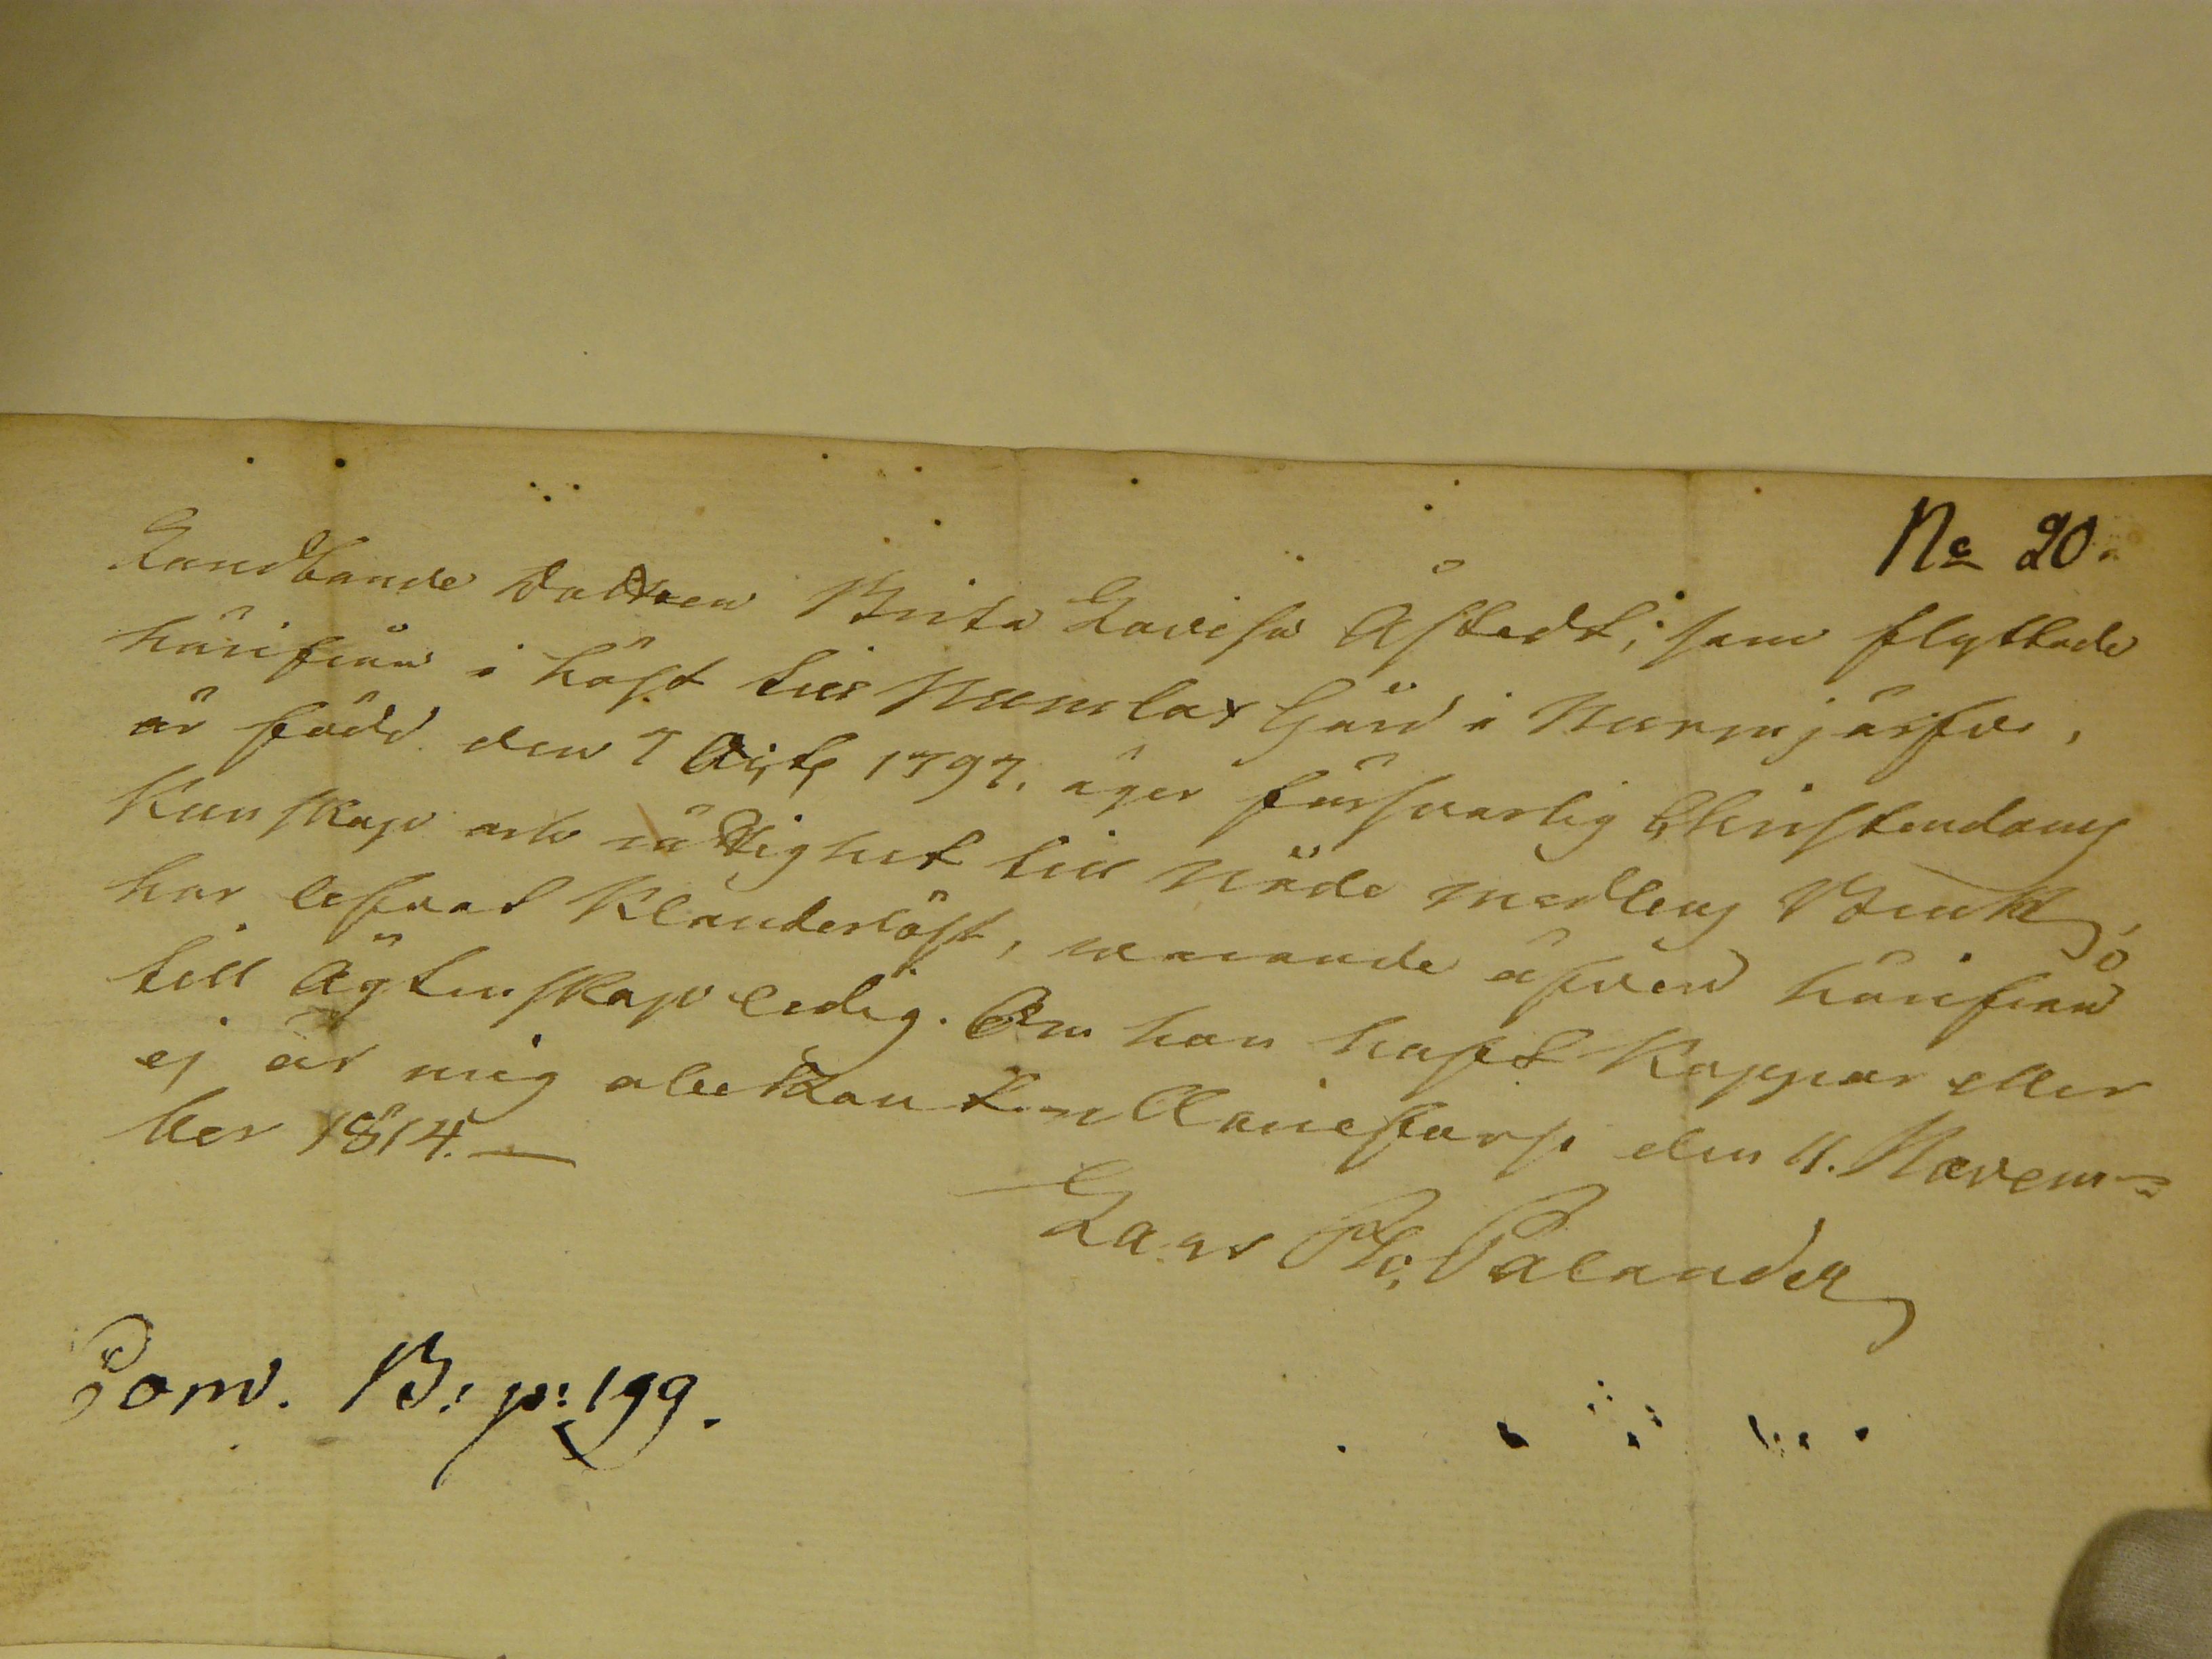 No 20.
Landbonde Dottren Brita Lovisa Åstedt, som flyttade
härifrån i höst till Numlax Gård i Nurmjärfvi,
är född den 7 1797, äger försvarlig Christendoms
Kunskap och rättighet till Nåde medlens Bruk,
har lefvat Klanderlöst, warande äfven härifrån
till Ägtenskap ledig. Om hon haft Koppor eller
ej är mig obekant. den 11. Novem=
ber 1814. —
Lars Palander
Com. B: p: 199.